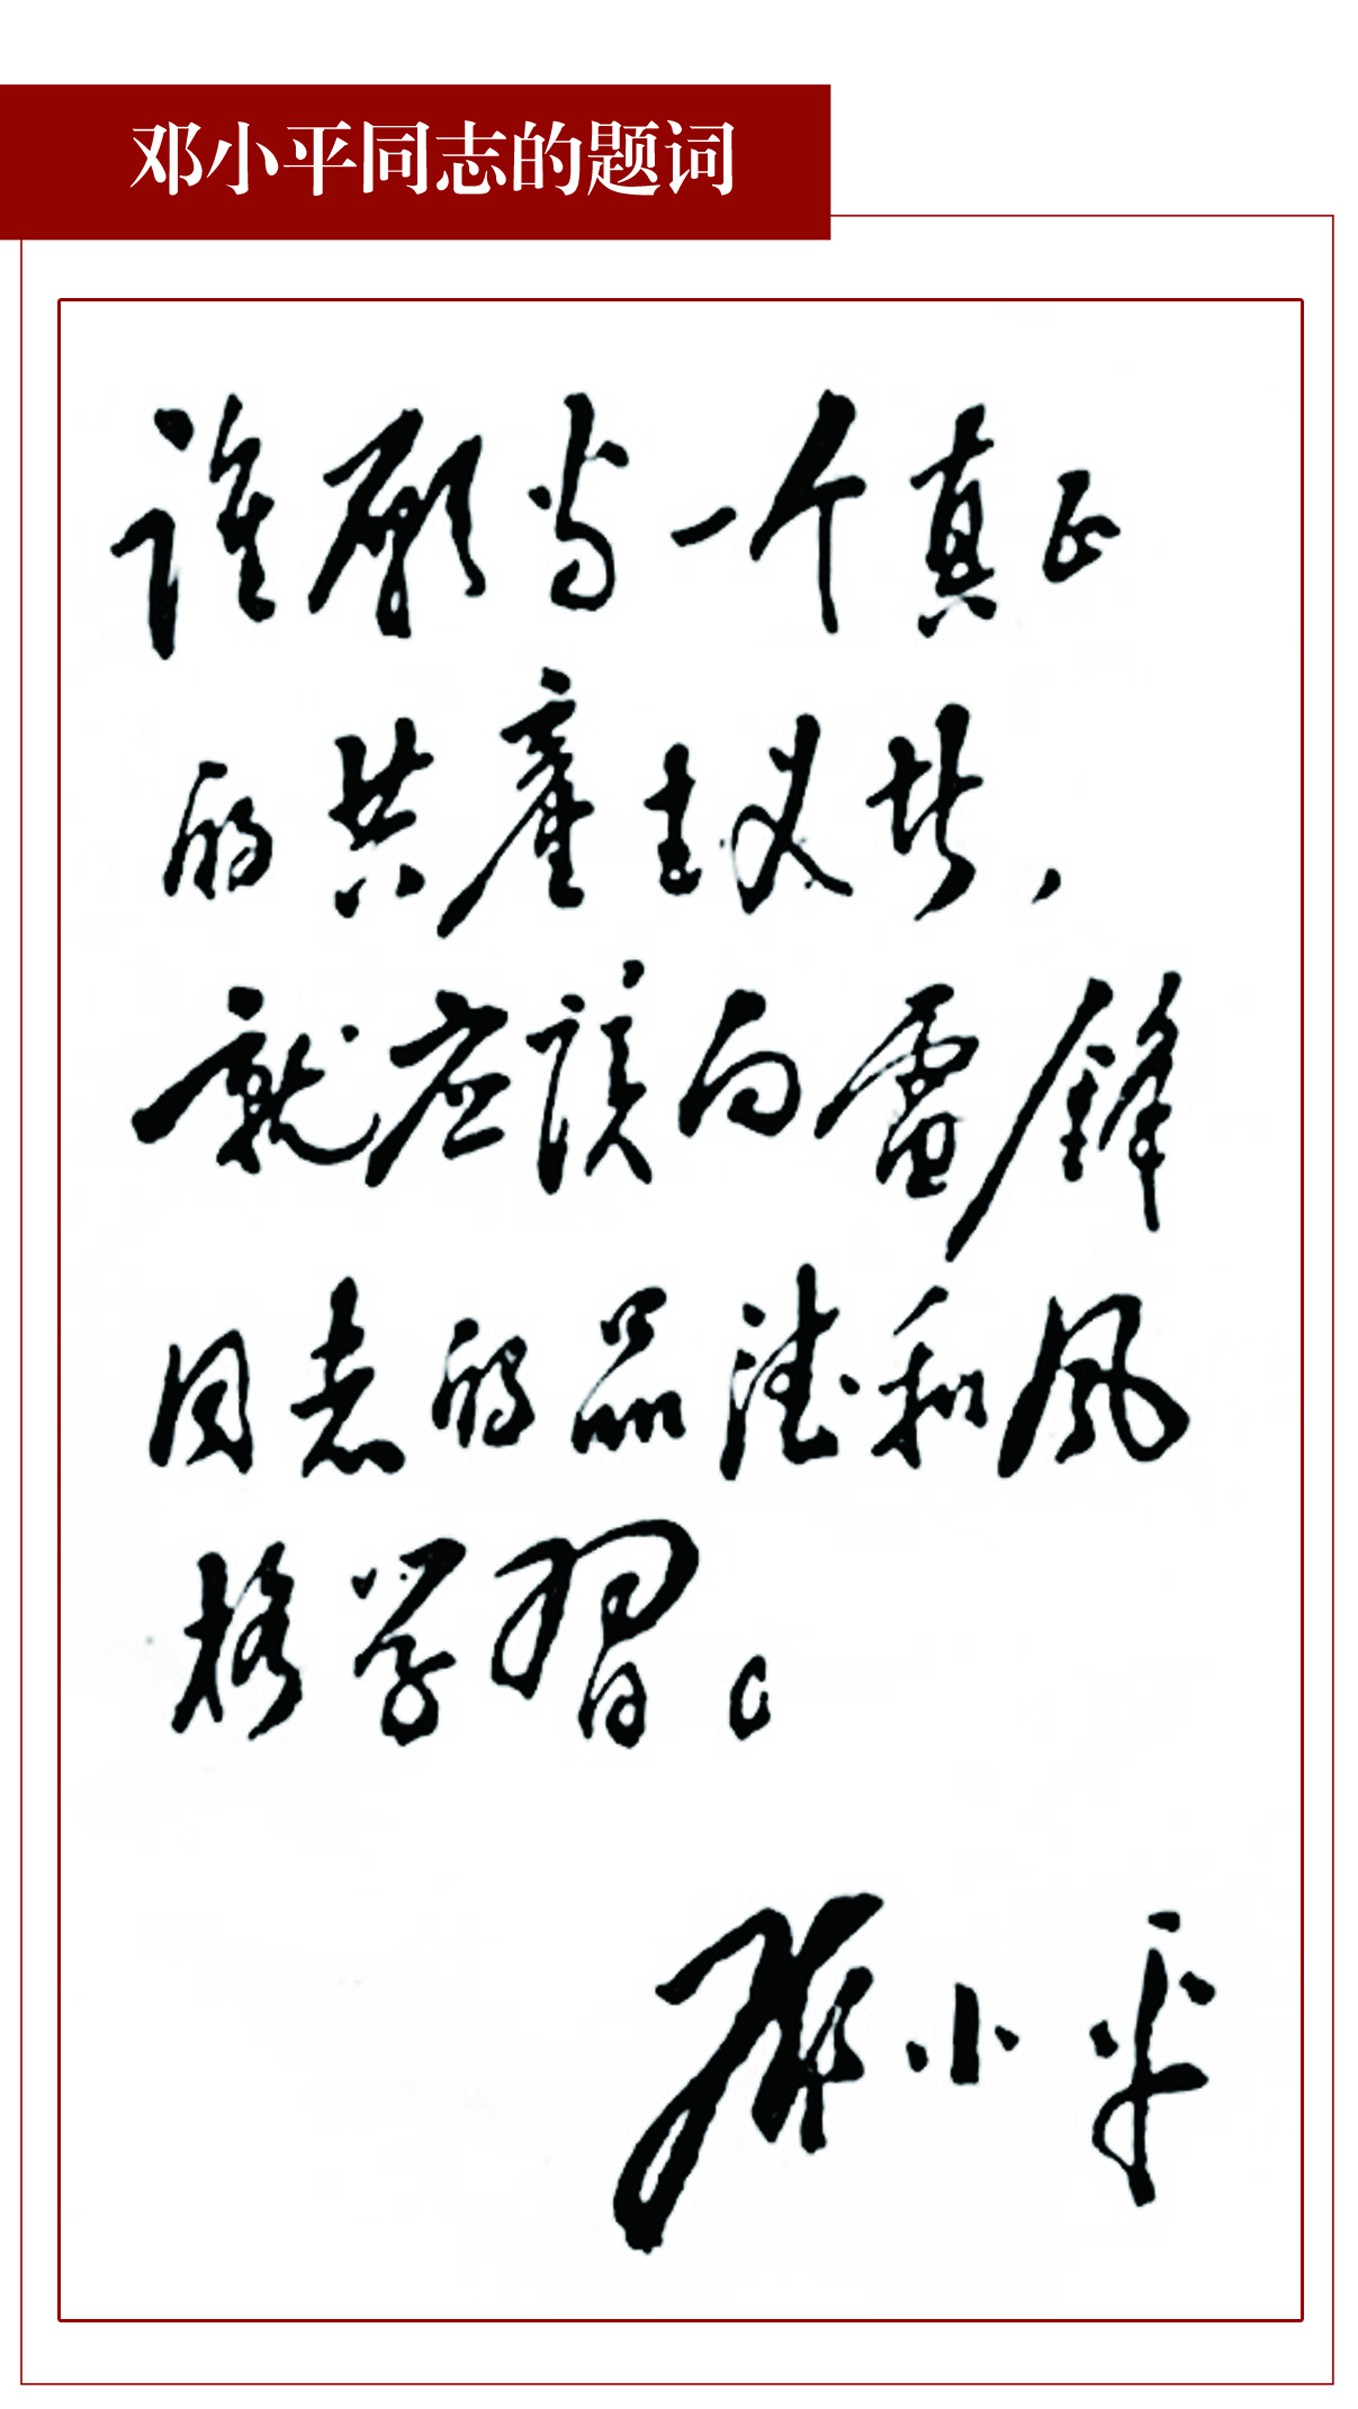 邓小平同志的题词
谁愿当一个真正
的共产主义者，
就应该向雷锋
同志的品德和风
格学习。
邓小平